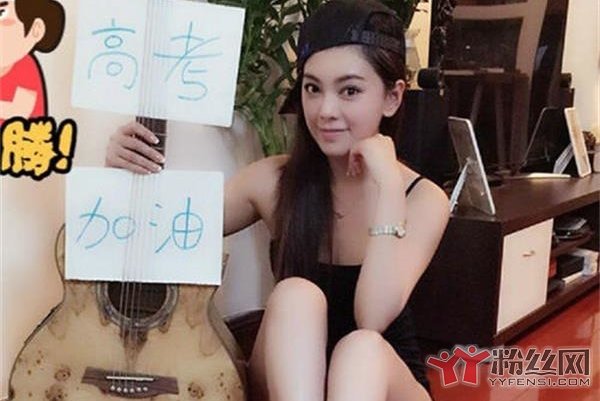 高考
勝!
加油
粉丝网
YYFENSI.COM